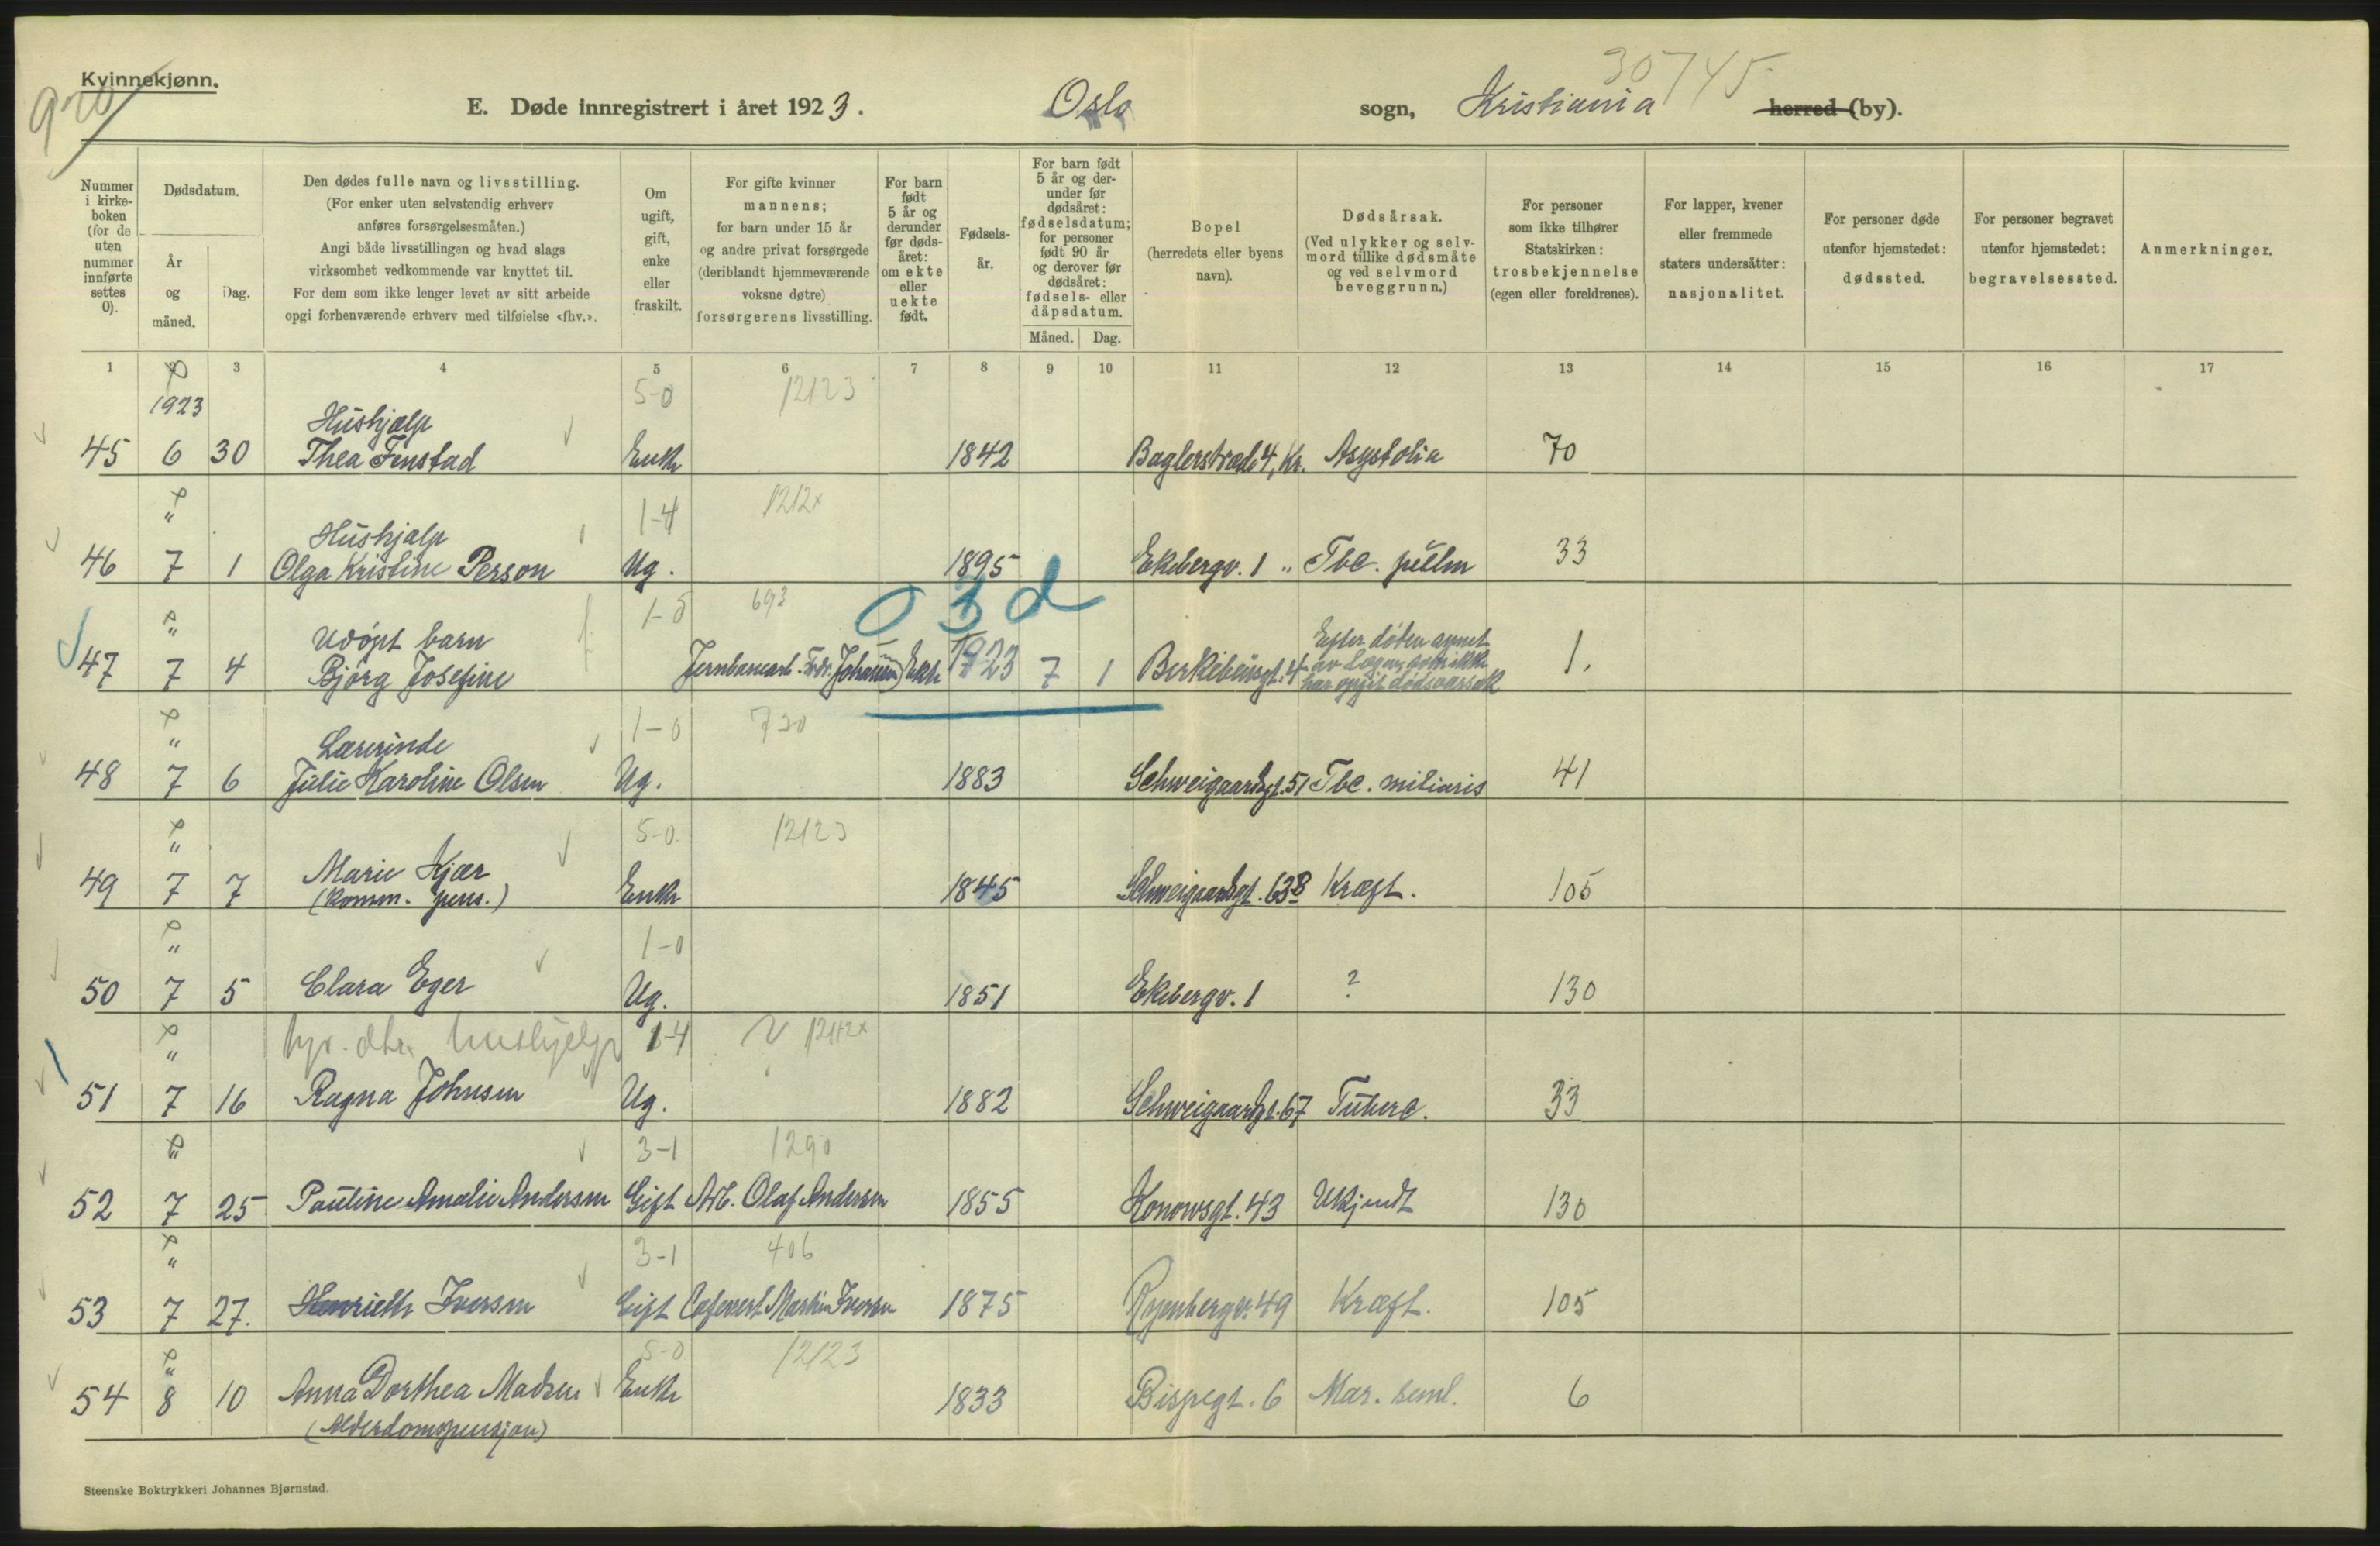 Kvinnekjønn.
920
30745
E. Døde innregistrert i året 1923. Oslo sogn, Kristiania herred (by).
Nummer i kirkeboken (for de uten nummer innførte settes 0).
Dødsdatum.
År og måned.
Dag.
Den dødes fulle navn og livsstilling.
(For enker uten selvstendig erhverv
anføres forsørgelsesmåten.)
Angi både livsstillingen og hvad slags
virksomhet vedkommende var knyttet til.
For dem som ikke lenger levet av sitt arbeide
opgi forhenværende erhverv med tilføielse «fhv.».
Om ugift, gift, enke eller fraskilt.
For gifte kvinner
mannens;
for barn under 15 år
og andre privat forsørgede
(deriblandt hjemmeværende
voksne døtre)
forsørgerens livsstilling.
For barn født 5 år og derunder før dødsåret: om ekte eller uekte født.
Fødselsår.
For barn født 5 år og derunder før dødsåret: fødselsdatum; for personer født 90 år og derover før dødsåret: fødsels- eller dåpsdatum.
Måned. Dag.
Bopel
(herredets eller byens
navn).
Dødsårsak.
(Ved ulykker og selvmord tillike dødsmåte og ved selvmord beveggrunn.)
For personer
som ikke tilhører
Statskirken:
trosbekjennelse
(egen eller foreldrenes).
For lapper, kvener
eller fremmede
staters undersåtter:
nasjonalitet.
For personer døde
utenfor hjemstedet:
dødssted.
For personer begravet
utenfor hjemstedet:
begravelsessted.
Anmerkninger.
1 2 3 4 5 6 7 8 9 10 11 12 13 14 15 16 17
1923 Hushjælp 5-0 12123
45 6 30 Thea Finstad Enke 1842 Baglerstræde 4, Kr. Asystolia 70
" Hushjælp 1-4 1212x
46 7 1 Olga Kristine Person Ug. 1895 Ekebergv. 1 " Tbc. pulm 33
03d
" Udøpt barn 1-5 693
47 7 4 Bjørg Josefine 1923 7 1 Birkebeinsgt. 4 Efter døden synet av læge, som ikke har opgit dødsaarsak 1.
" Lærerinde 1-0 730
48 7 6 Julie Karoline Olsen Ug. 1883 Schweigaardsgt. 51 Tbc. miliaris 41
" 5-0 12123
49 7 7 Marie Kjær Enke 1845 Schweigaardsgt. 63B Kræft. 105
(Komm. pens.)
" 1-0
50 7 5 Clara Eger Ug. 1851 Ekebergv. 1 ? 130
" hushjelp 1-4
51 7 16 Ragna Johnsen Ug. 1882 Schweigaardsgt. 67 Tuberc. 33
" 3-1 1290
52 7 25 Pauline Amalie Andersen Gift Arb. Olaf Andersen 1855 Konowsgt. 43 Ukjendt 130
" 3-1 406
53 7 27. Henriette Iversen Gift Cafevert Martin Iversen 1875 Ryenbergv. 49 Kræft. 105
" 5-0 12123
54 8 10 Anna Dorthea Madsen Enke 1833 Bispegt. 6 Mar. senil. 6
(Alderdomspensjon)
Steenske Boktrykkeri Johannes Bjørnstad.